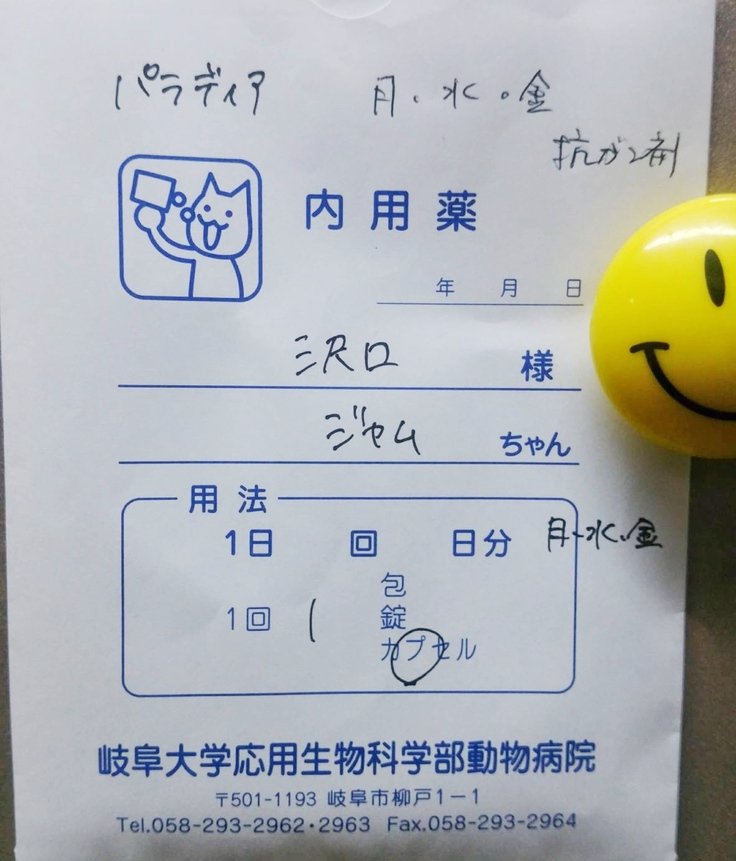 パラディア 月・水・金
抗ガン剤
内用薬
年 月 日
三沢口 様
ジャム ちゃん
用法
1日 回 日分 月・水・金
包
1回 1 錠
カプセル
岐阜大学応用生物科学部動物病院
〒501-1193 岐阜市柳戸1-1
Tel.058-293-2962・2963 Fax.058-293-2964